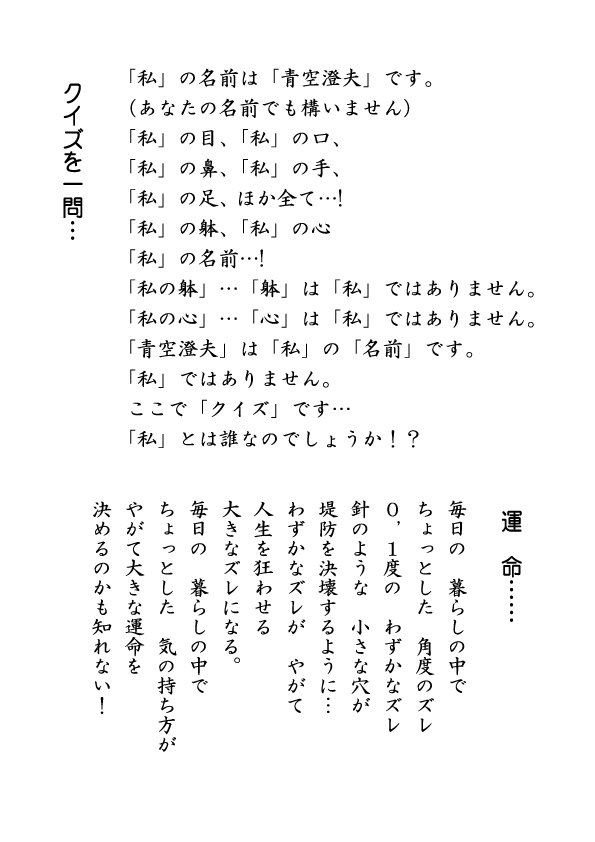 クイズを一問…
「私」の名前は「青空澄夫」です。
（あなたの名前でも構いません）
「私」の目、「私」の口、
「私」の鼻、「私」の手、
「私」の足、ほか全て…!
「私」の躰、「私」の心
「私」の名前…!
「私の躰」…「躰」は「私」ではありません。
「私の心」…「心」は「私」ではありません。
「青空澄夫」は「私」の「名前」です。
「私」ではありません。
ここで「クイズ」です…
「私」とは誰なのでしょうか！？
運　命……
毎日の　暮らしの中で
ちょっとした　角度のズレ
０，１度の　わずかなズレ
針のような　小さな穴が
堤防を決壊するように…
わずかなズレが　やがて
人生を狂わせる
大きなズレになる。
毎日の　暮らしの中で
ちょっとした　気の持ち方が
やがて大きな運命を
決めるのかも知れない！